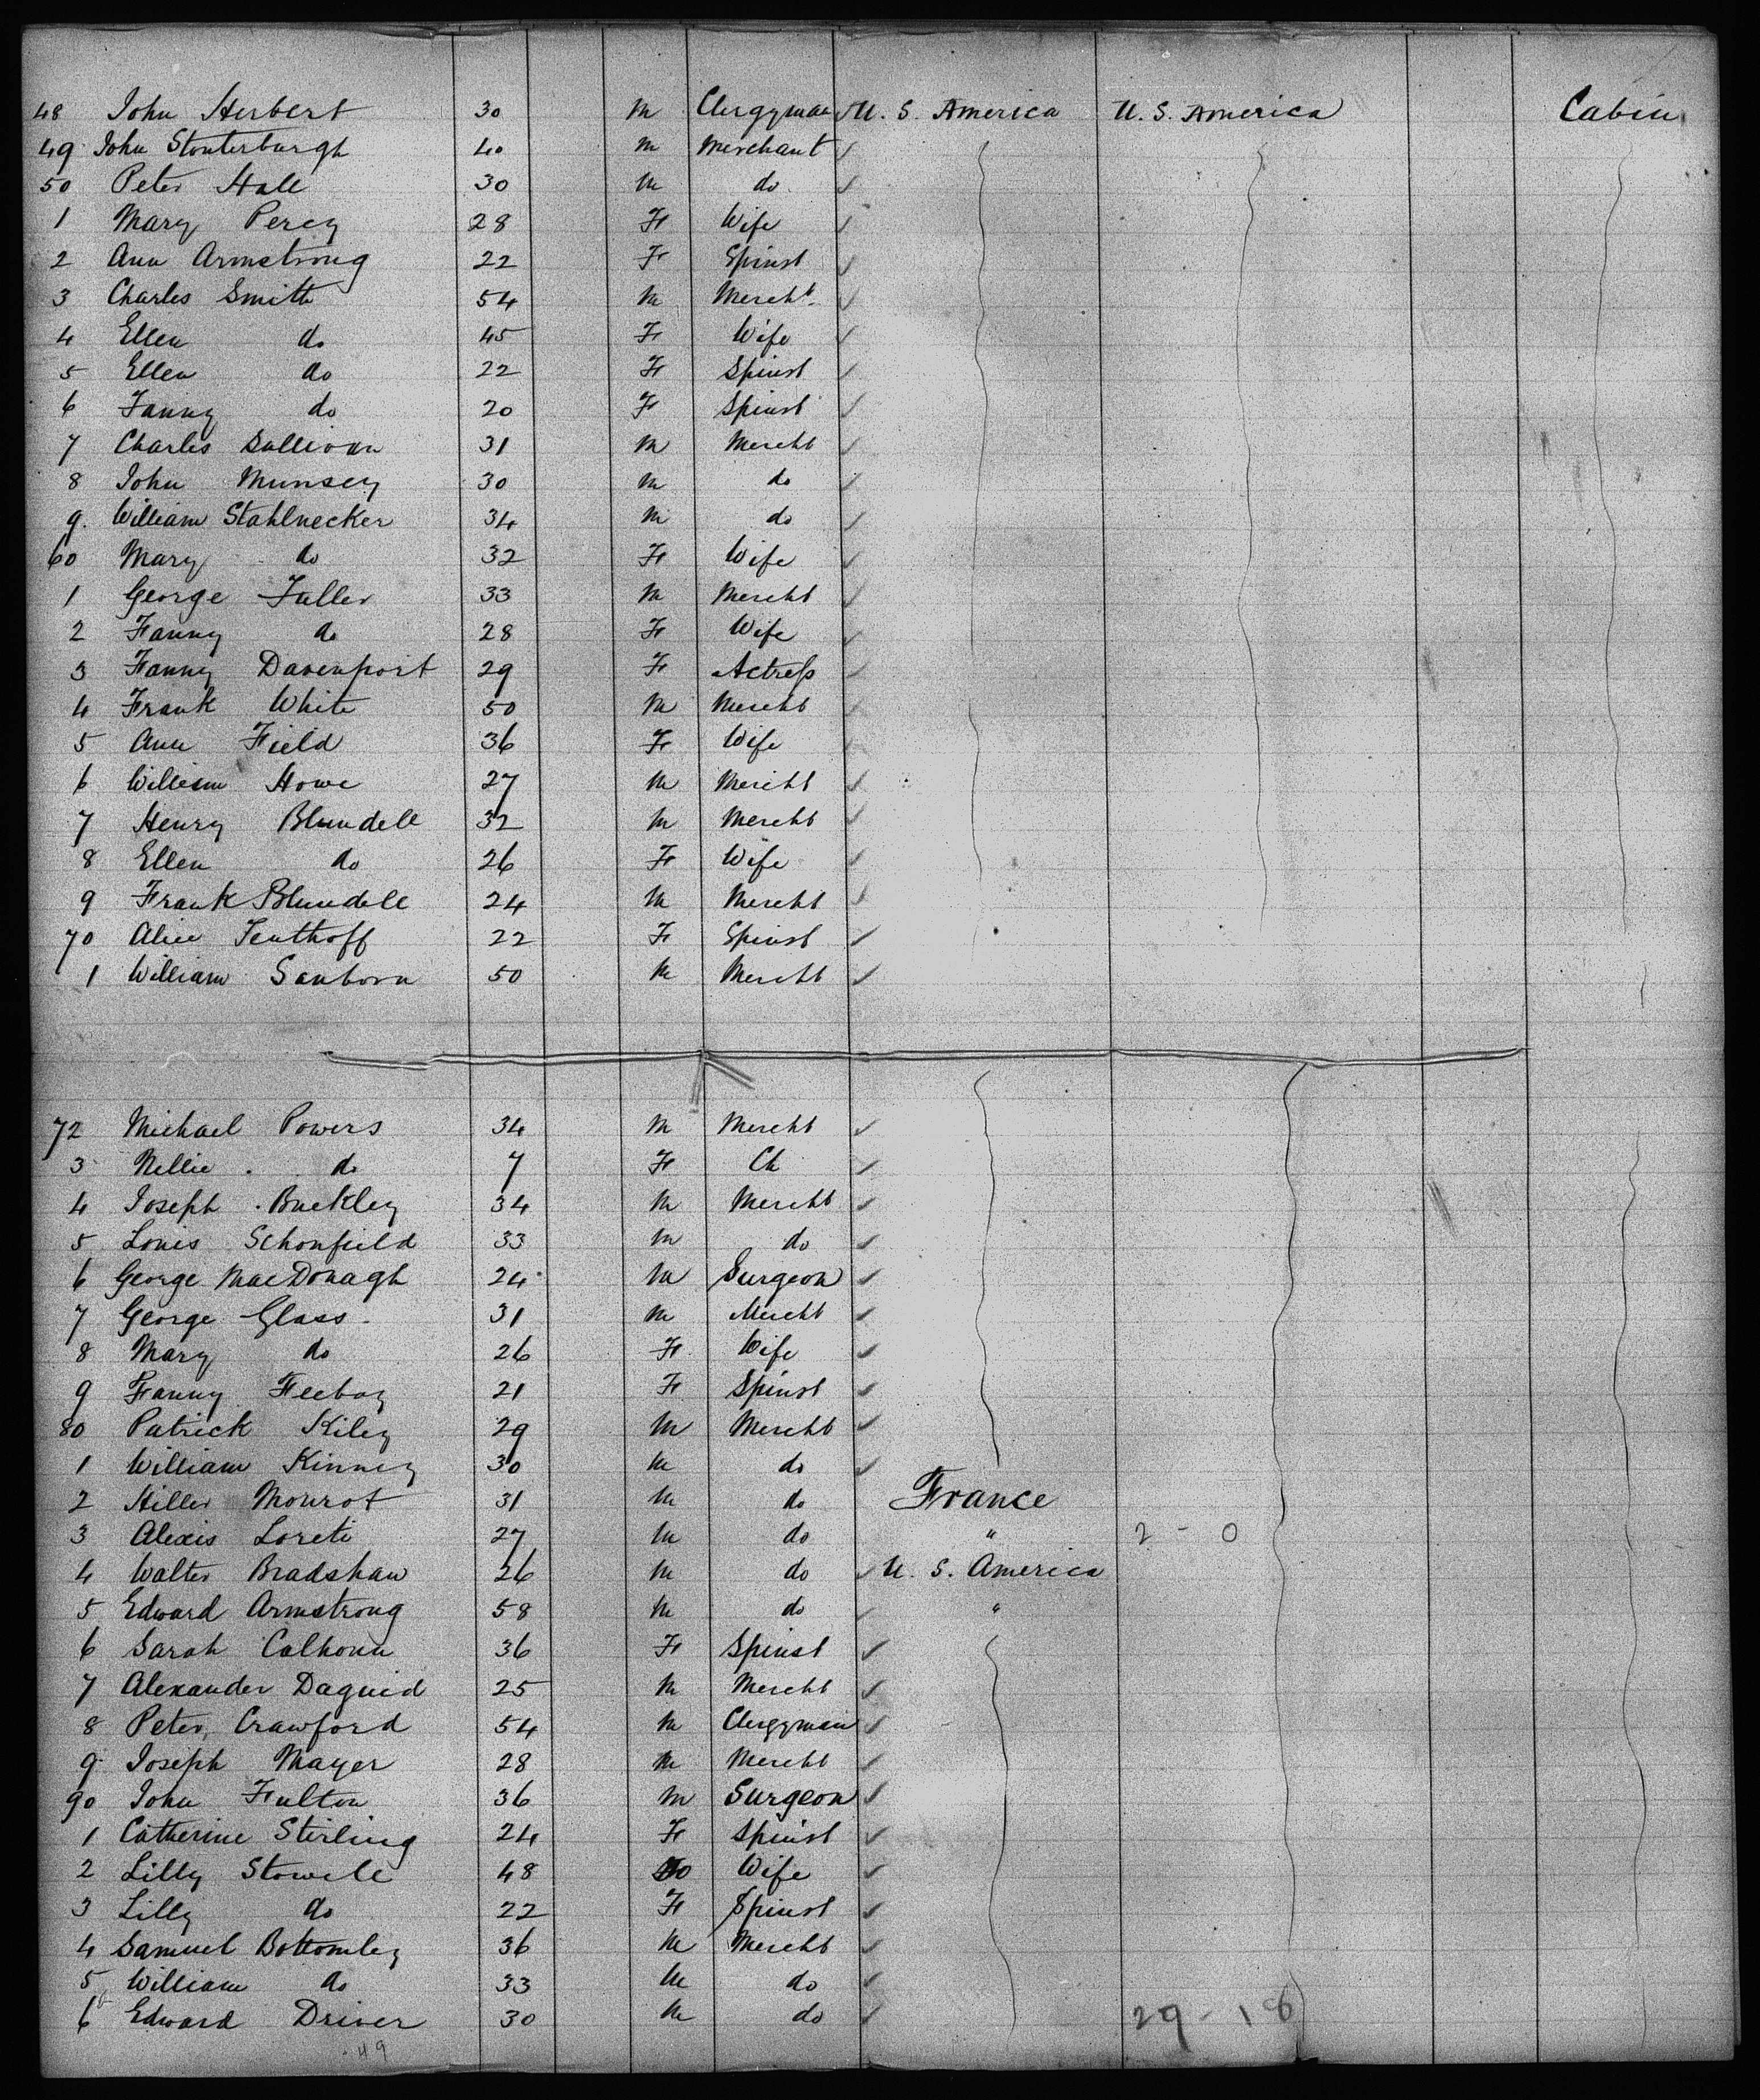 48 John Herbert 30 M Clergyman U. S. America U. S. America Cabin
49 John Stouterburgh 40 M Merchant
50 Peter Hall 30 M do
1 Mary Percy 28 F Wife
2 Ann Armstrong 22 F Spinst
3 Charles Smith 54 M Mercht
4 Ellen do 45 F Wife
5 Ellen do 22 F Spinst
6 Fanny do 20 F Spinst
7 Charles Sullivan 31 M Mercht
8 John Munsey 30 M do
9. William Stahlnecker 34 M do
60 Mary do 32 F Wife
1 George Fuller 33 M Mercht
2 Fanny do 28 F Wife
3 Fanny Davenport 29 F Actress
4 Frank White 50 M Mercht
5 Ann Field 36 F Wife
6 William Howe 27 M Mercht
7 Henry Blundell 32 M Mercht
8 Ellen do 26 F Wife
9 Frank Blundell 24 M Mercht
70 Alice Tenthoff 22 F Spinst
1 William Sanborn 50 M Mercht
72 Michael Powers 34 M Mercht
3 Nellie do 7 F Ch
4 Joseph Buckley 34 M Mercht
5 Louis Schonfield 33 M do
6 George MacDonagh 24 M Surgeon
7 George Glass 31 M Mercht
8 Mary do 26 F Wife
9 Fanny Feebay 21 F Spinst
80 Patrick Kiley 29 M Mercht
1 William Kinney 30 M do
2 Hiller Monrot 31 M do France
3 Alexis Loreti 27 M do " 2 - 0
4 Walter Bradshaw 26 M do U. S. America
5 Edward Armstrong 58 M do "
6 Sarah Calhoun 36 F Spinst
7 Alexander Daguid 25 M Mercht
8 Peter Crawford 54 M Clergyman
9 Joseph Mayer 28 M Mercht
90 John Fulton 36 M Surgeon
1 Catherine Stirling 24 F Spinst
2 Lilly Stowell 48 Wife
3 Lilly do 22 F Spinst
4 Samuel Bottomley 36 M Mercht
5 William do 33 M do
6 Edward Driver 30 M do 29 - 18
49